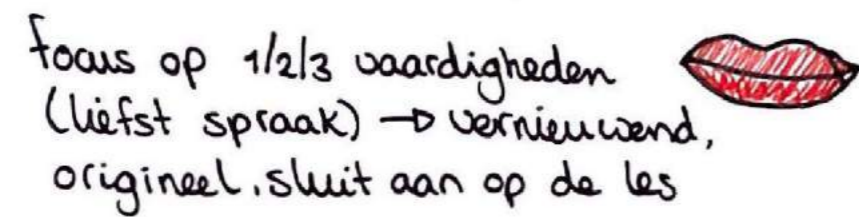 focus op 1/2/3 vaardigheden
(liefst spraak) → vernieuwend,
origineel, sluit aan op de les